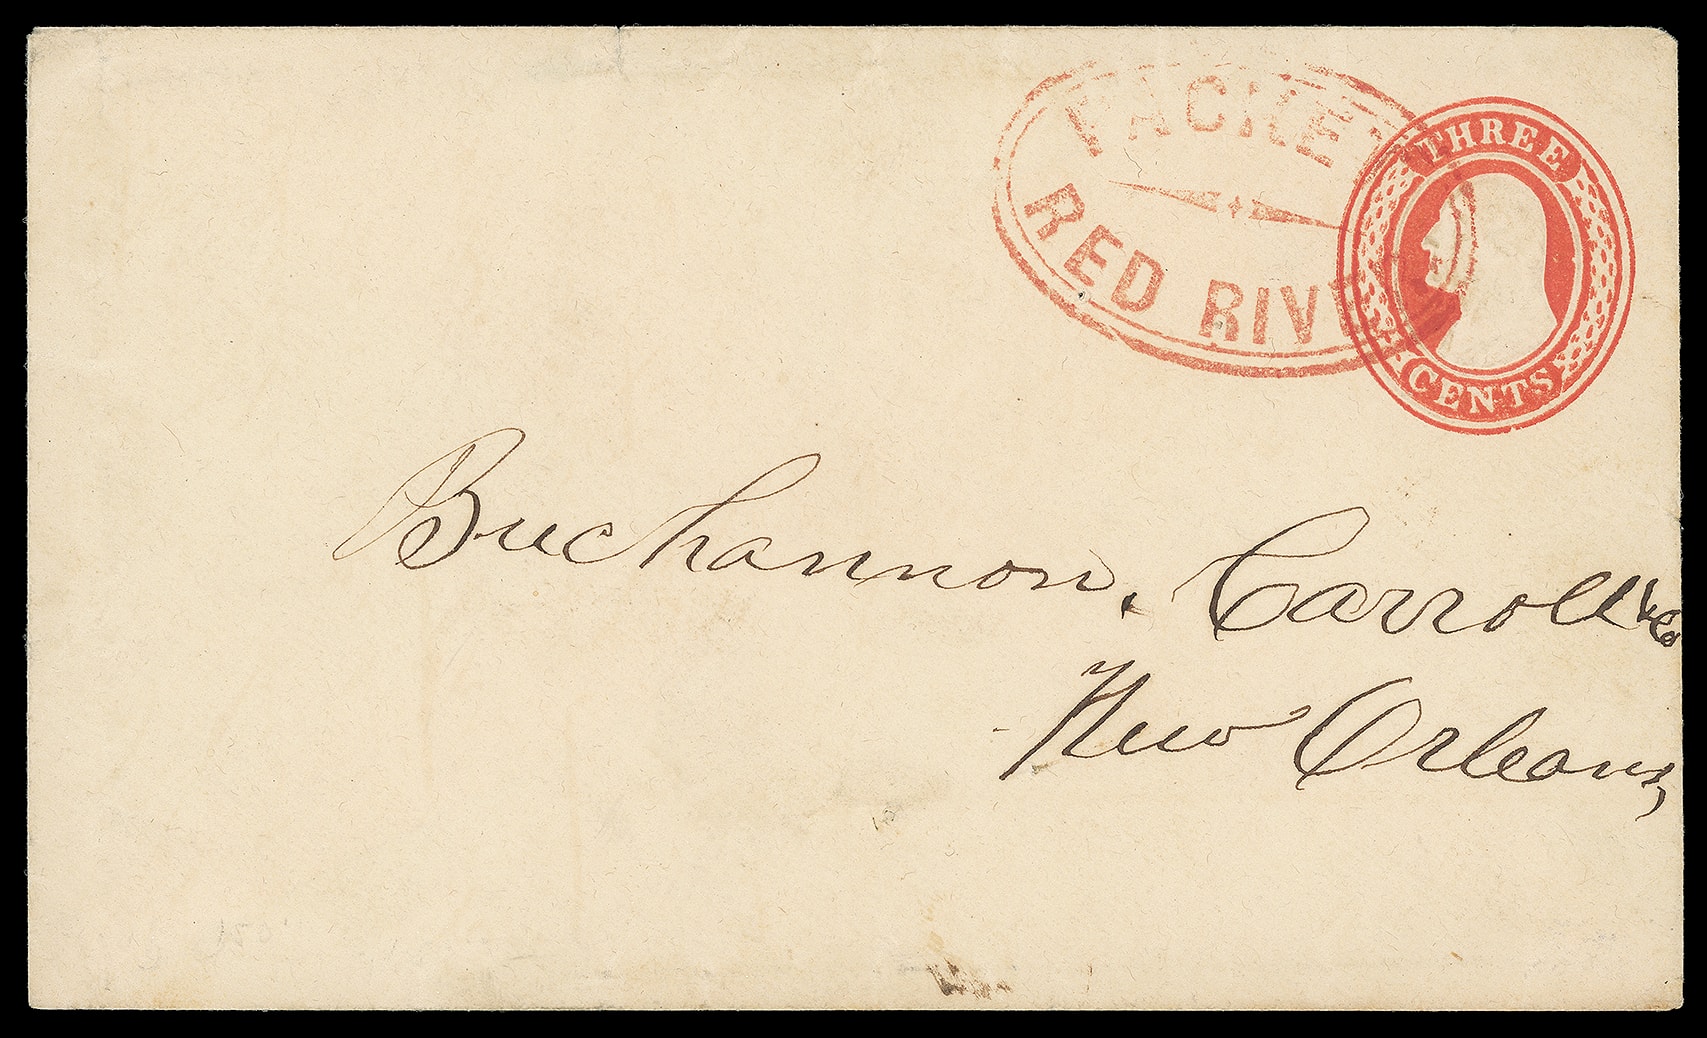 PACKET
RED RIVER
THREE
CENTS
Buchannon, Carroll & Co
New Orleans,